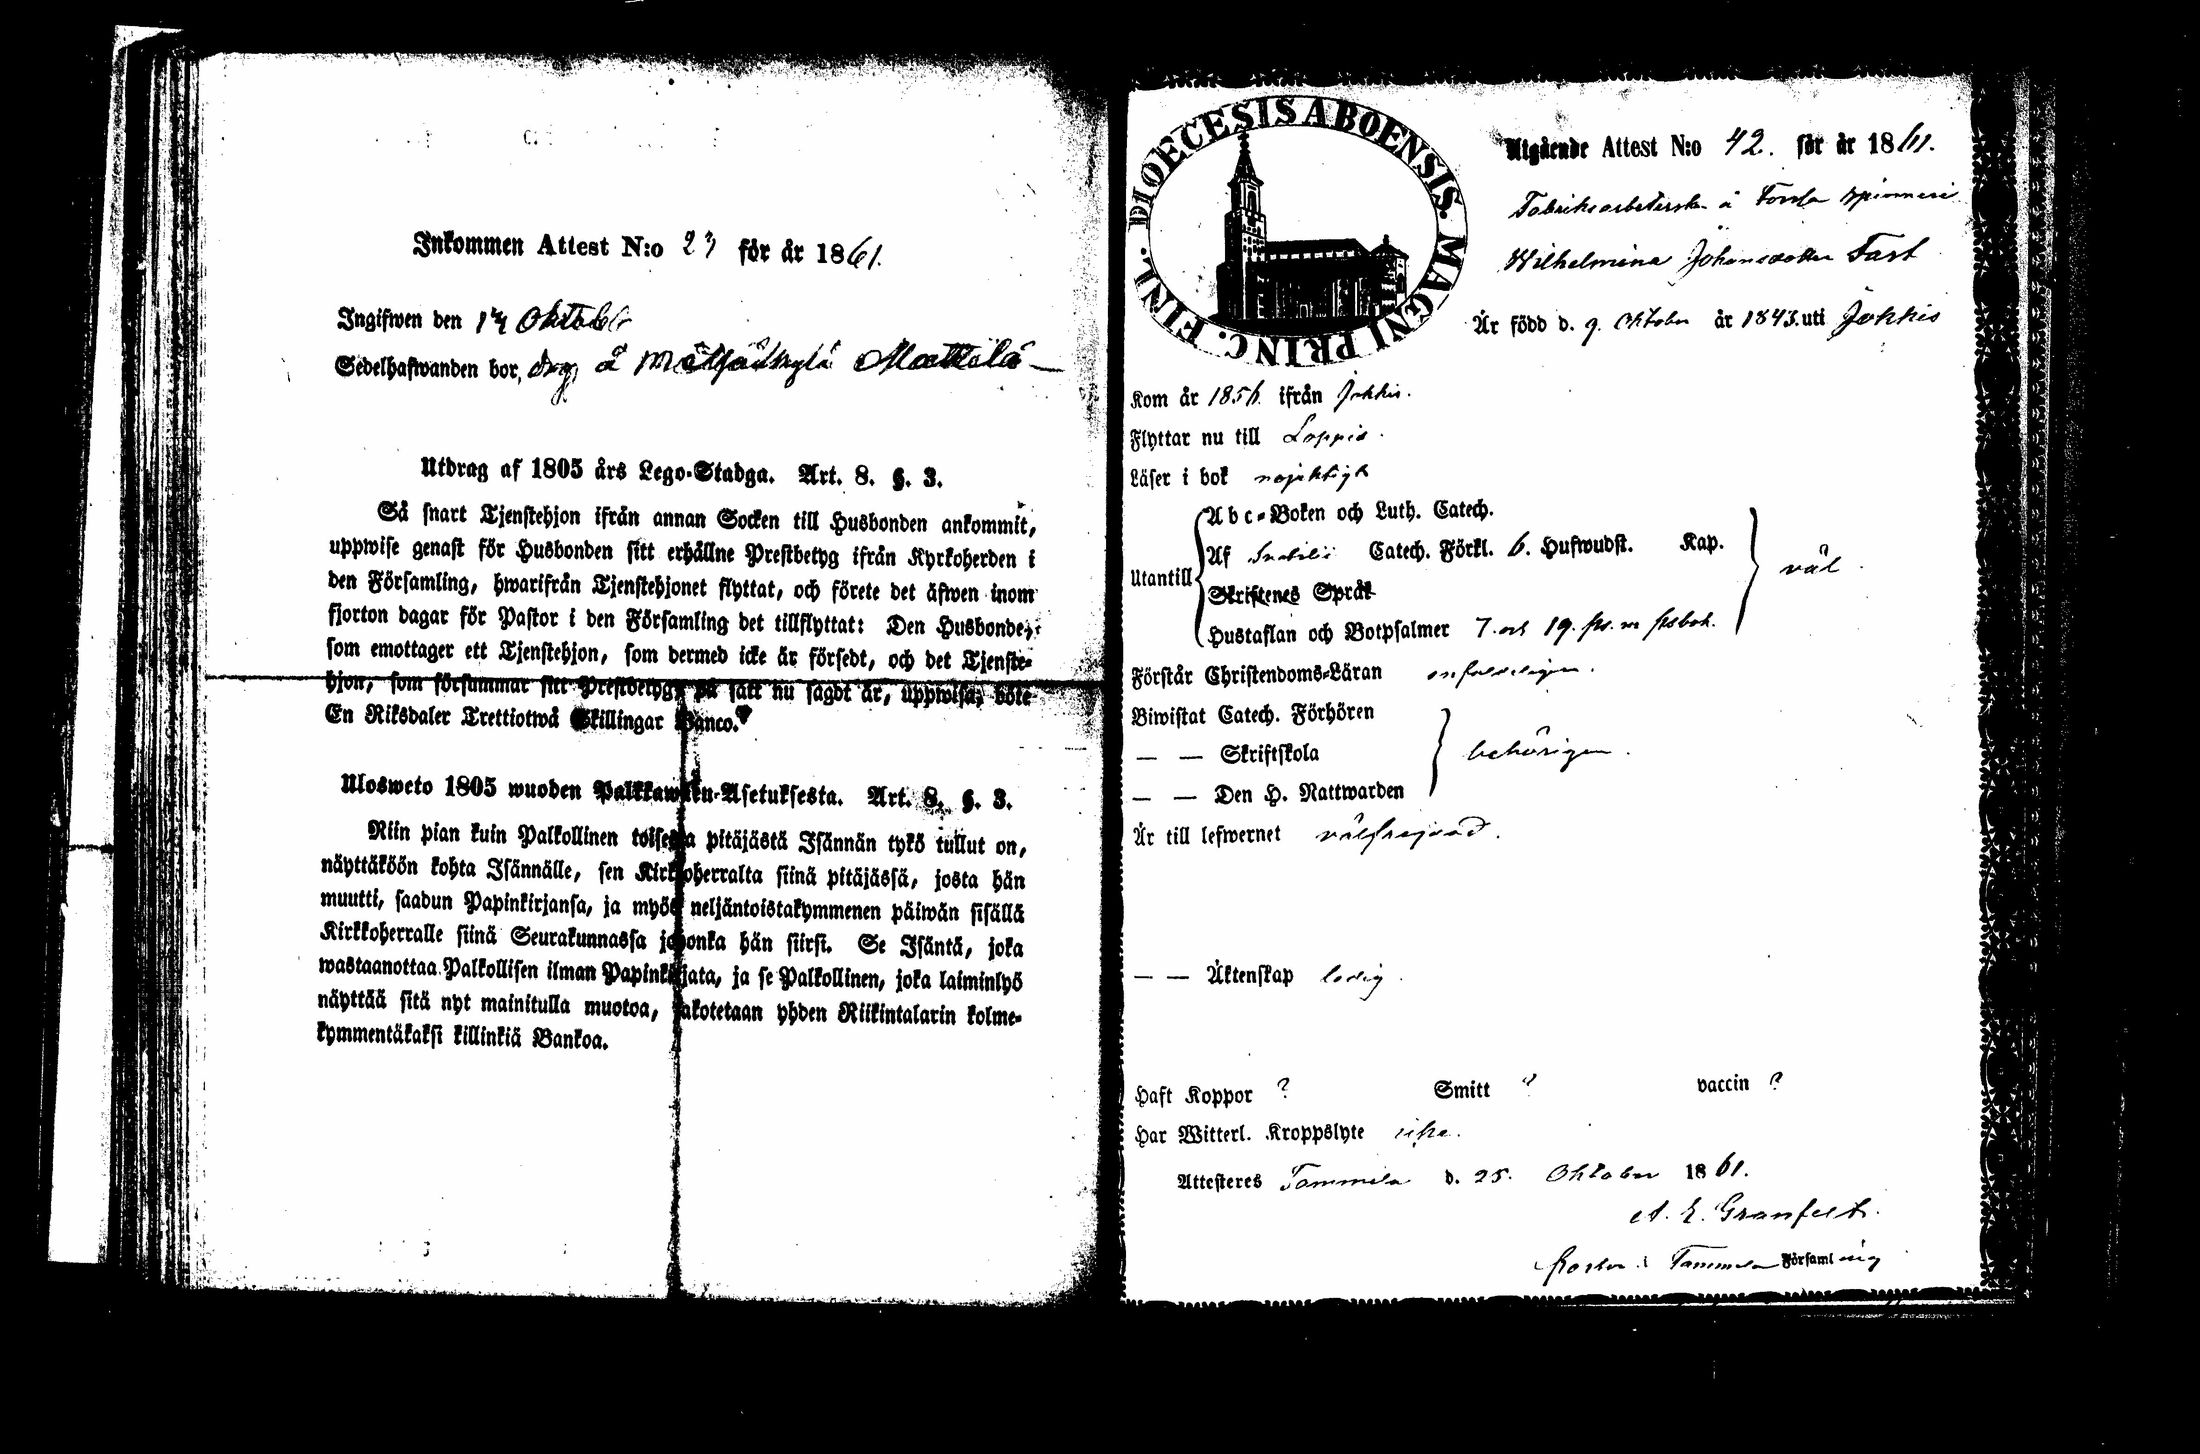 Inkommen Attest N:o 23 för år 1861.
Ingifwen den Oktober
Sedelhafwanden bor, å Mattila
Utdrag af 1805 års Lego-Stadga. Art. 8. §. 3.
Så snart Tjenstehjon ifrån annan Socken till Husbonden ankommit,
uppwise genast för Husbonden sitt erhållne Prestbetyg ifrån Kyrkoherden i
den Församling, hwarifrån Tjenstehjonet flyttat, och förete det äfwen inom
fjorton dagar för Pastor i den Församling det tillflyttat: Den Husbonde,
som emottager ett Tjenstehjon, som dermed icke är försedt, och det Tjenste-
hjon, som försummar sitt Prestbetyg, på sätt nu sagdt är, uppwisa, böte
En Riksdaler Trettiotwå Skillingar Banco.
Ulosweto 1805 wuoden Palkkawäen-Asetuksesta. Art. 8. §. 3.
Niin pian kuin Palkollinen toisesta pitäjästä Isännän tykö tullut on,
näyttäköön kohta Isännälle, sen Kirkkoherralta siinä pitäjässä, josta hän
muutti, saadun Papinkirjansa, ja myös neljäntoistakymmenen päiwän sisällä
Kirkkoherralle siinä Seurakunnassa johonka hän siirsi. Se Isäntä, joka
wastaanottaa Palkollisen ilman Papinkirjata, ja se Palkollinen, joka laiminlyö
näyttää sitä nyt mainitulla muotoa, sakotetaan yhden Riikintalarin kolme-
kymmentäkaksi killinkiä Bankoa.
DIOECESIS ABOENSIS. MAGNI PRINC. FINL.
Utgående Attest N:o 42. för år 1861.
Fabriksarbeterska å Forssa spinneri
Wilhelmina Johansdotter Fast
Är född d. 9. Oktober år 1843. uti Jokkis
Kom år 1856. ifrån Jokkis.
Flyttar nu till Loppis.
Läser i bok nöjaktigt
Utantill
Abc-Boken och Luth. Catech.
Af Svebilii Catech. Förkl. 6. Hufwudst. Kap.
Skriftenes Språk
Hustaflan och Botpsalmer 7. och 19. ps. psbok.
väl.
Förstår Christendoms-Läran enfaldeligen.
Biwistat Catech. Förhören
— — Skriftskola
— — Den H. Nattwarden
behörigen.
Är till lefwernet välfrejdad.
— — Äktenskap ledig.
Haft Koppor ? Smitt ? vaccin ?
Har Witterl. Kroppslyte icke.
Attesteres Tammela d. 25. Oktober 1861.
A. E. Granfelt.
Pastor i Tammela Församling